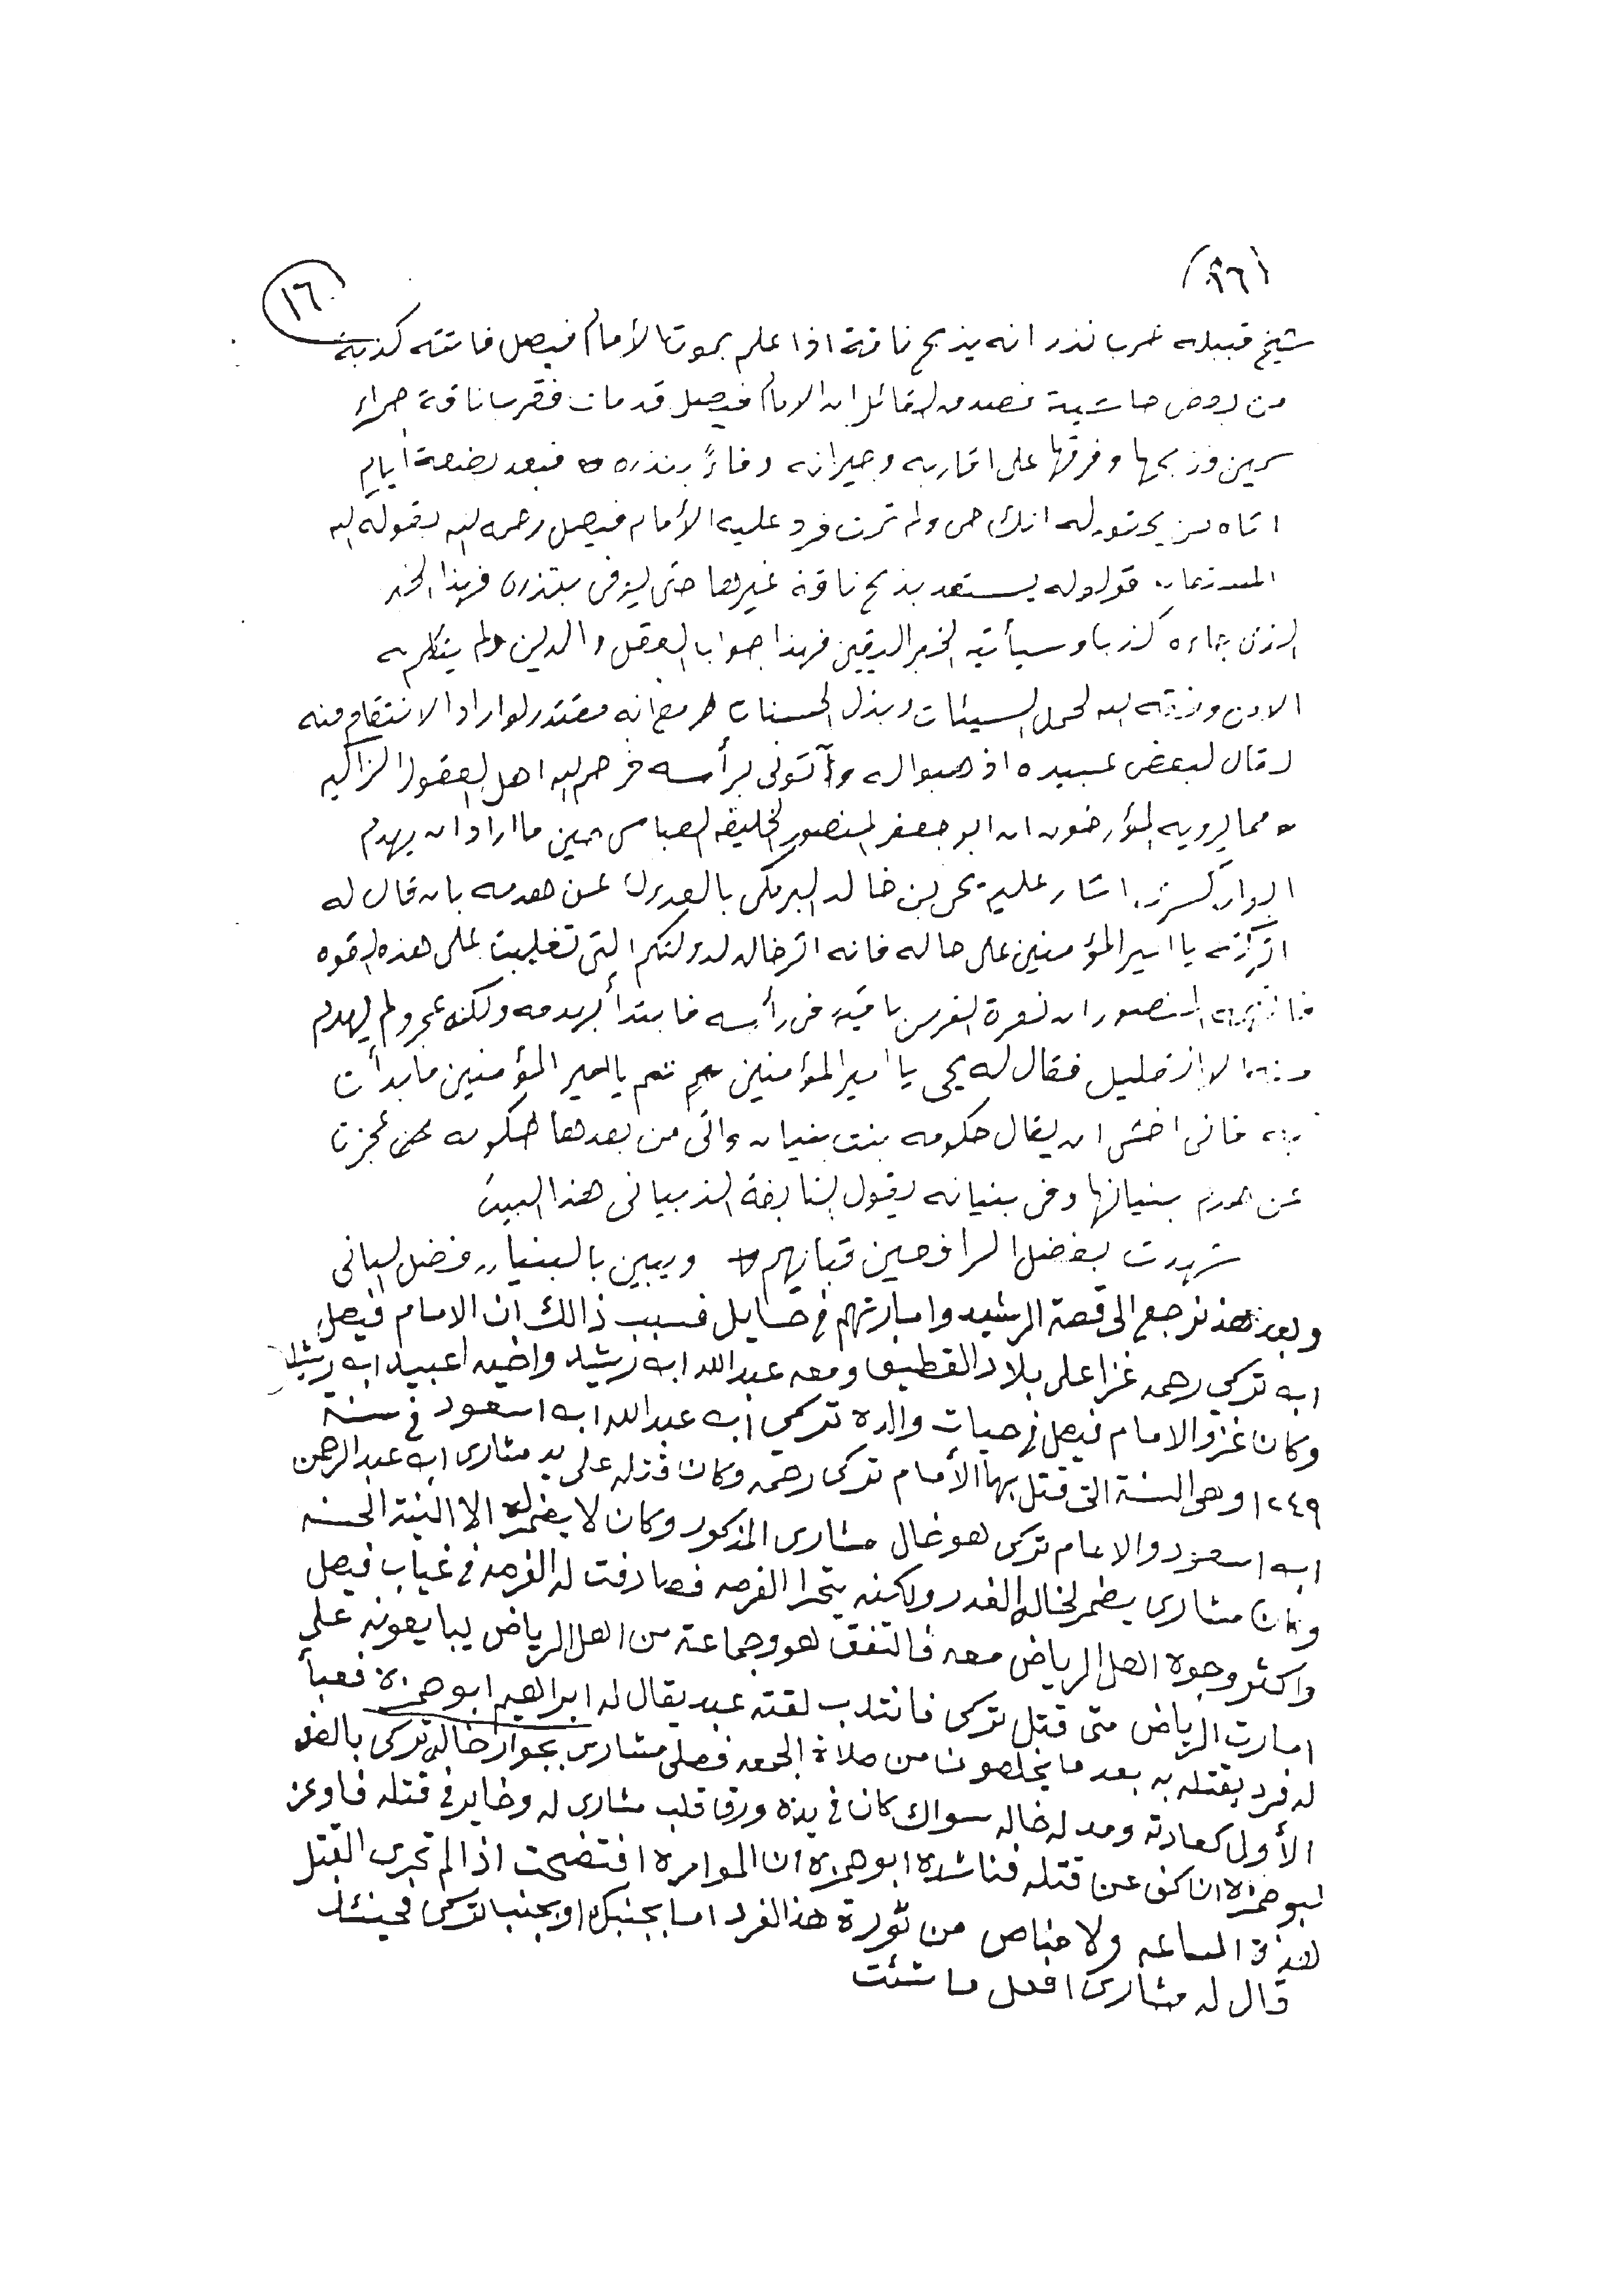 (١٦)
١٦
شيخ قبيله غرب نذر انه يذبح ناقة اذا علم بموت الأمام فيصل فاتته كذبة
من بعض حاشيية فصدق القائل ان الامام فيصل قد مات فقرب ناقة حمراء
سمين وذبحها وفرقها على اقاربه وجيرانه وفاءً بنذره فبعد بضعة أيام
اتاه من يقول له انك حى ولم تمت فرد عليه الأمام فيصل رحمه الله بقوله
قولو له يستعد بذبح ناقة غيرها حتى يوفى بنذره فهذا الخبر
الذى جاءه كذب وسيأتيه الخبر اليقين فهذا جواب العقل والدين ولم يتكلم به
الا من وفقه الله لحمل السيئات وبذل الحسنات مع انه مقتدر لو اراد الانتقام منه
لقال لبعض عبيده اذهبوا له وآتونى برأسه فرحم الله اهل العقول الزاكيه
مما يرويه المؤرخون ان ابو جعفر المنصور الخليفه العباسى حين ما اراد ان يهدم
ايوان كسرى اشار عليه يحى بن خالد البرمكى بالعدول عن هدمه بان قال له
اتركه يا امير المؤمنين على حاله فانه اثر خالد لدولتكم التى تغلبت على هذه القوه
المنصور ان نعرة الفرس باقية فى رأسه فابتدأ بهدمه ولكنه عجز ولم يهدم
منه الا نزر قليل فقال له يحى يا امير المؤمنين تمم يا امير المؤمنين ما بدأت
به فانى اخشى ان يقال حكومه بنت بنيان واتى من بعدها حكومه عجزت
عن هدم بنيانها وفى بنيانه يقول النابغة الذبيانى هذا البيت
شهدت بفضل الرافعين قبابهم ويبين بالبنيان فضل البانى
وبعد هذ نرجع الى قصة الرشيد وامارتهم فى حايل فسبب ذالك ان الامام فيصل
ابه تركي رحمه غزا على بلاد القطيف ومعه عبد الله ابه رشيد واخيه اعبيد ابه رشيد
وكان غزو الامام فيصل فى حيات والده تركي ابه عبد الله ابه اسعود فى سنة
١٢٤٩ وهى السنة التى قتل بها الأمام تركى رحمه وكان قتله على يد مشارى ابه عبد الرحمن
ابه اسعود والامام تركى هو خال مشارى المذكور وكان لا يضمر له الا النية الحسنه
وكان مشارى يضمر لخاله الغدر ولكنه يتحرا الفرصه فصادفت له الفرصه فى غياب فيصل
واكثر وجوه اهل الرياض معه فالتفق هو وجماعة من اهل الرياض يبايعونه على
امارت الرياض متى قتل تركى فانتدب لقتله عبد يقال له ابراهيم ابو حمزه فعبأ
له فرد يقتله به بعد ما يخلصون من صلاة الجمعه فصلى مشارى بجوار خاله تركى بالصف
الأول كعادته ومد له خاله سواك كان فى يده ورق قلب مشارى له وخاير فى قتله فاوعز
لبو حمزه ان كف عن قتله فناشده ابو حمزه ان الموامره افتضحت اذا لم تجرى القتل
هذه الساعه ولا مناص من ثورة هذ الفرد اما بجنبك او بجنب تركى فحينئذ
قال له مشارى افعل ما شئت